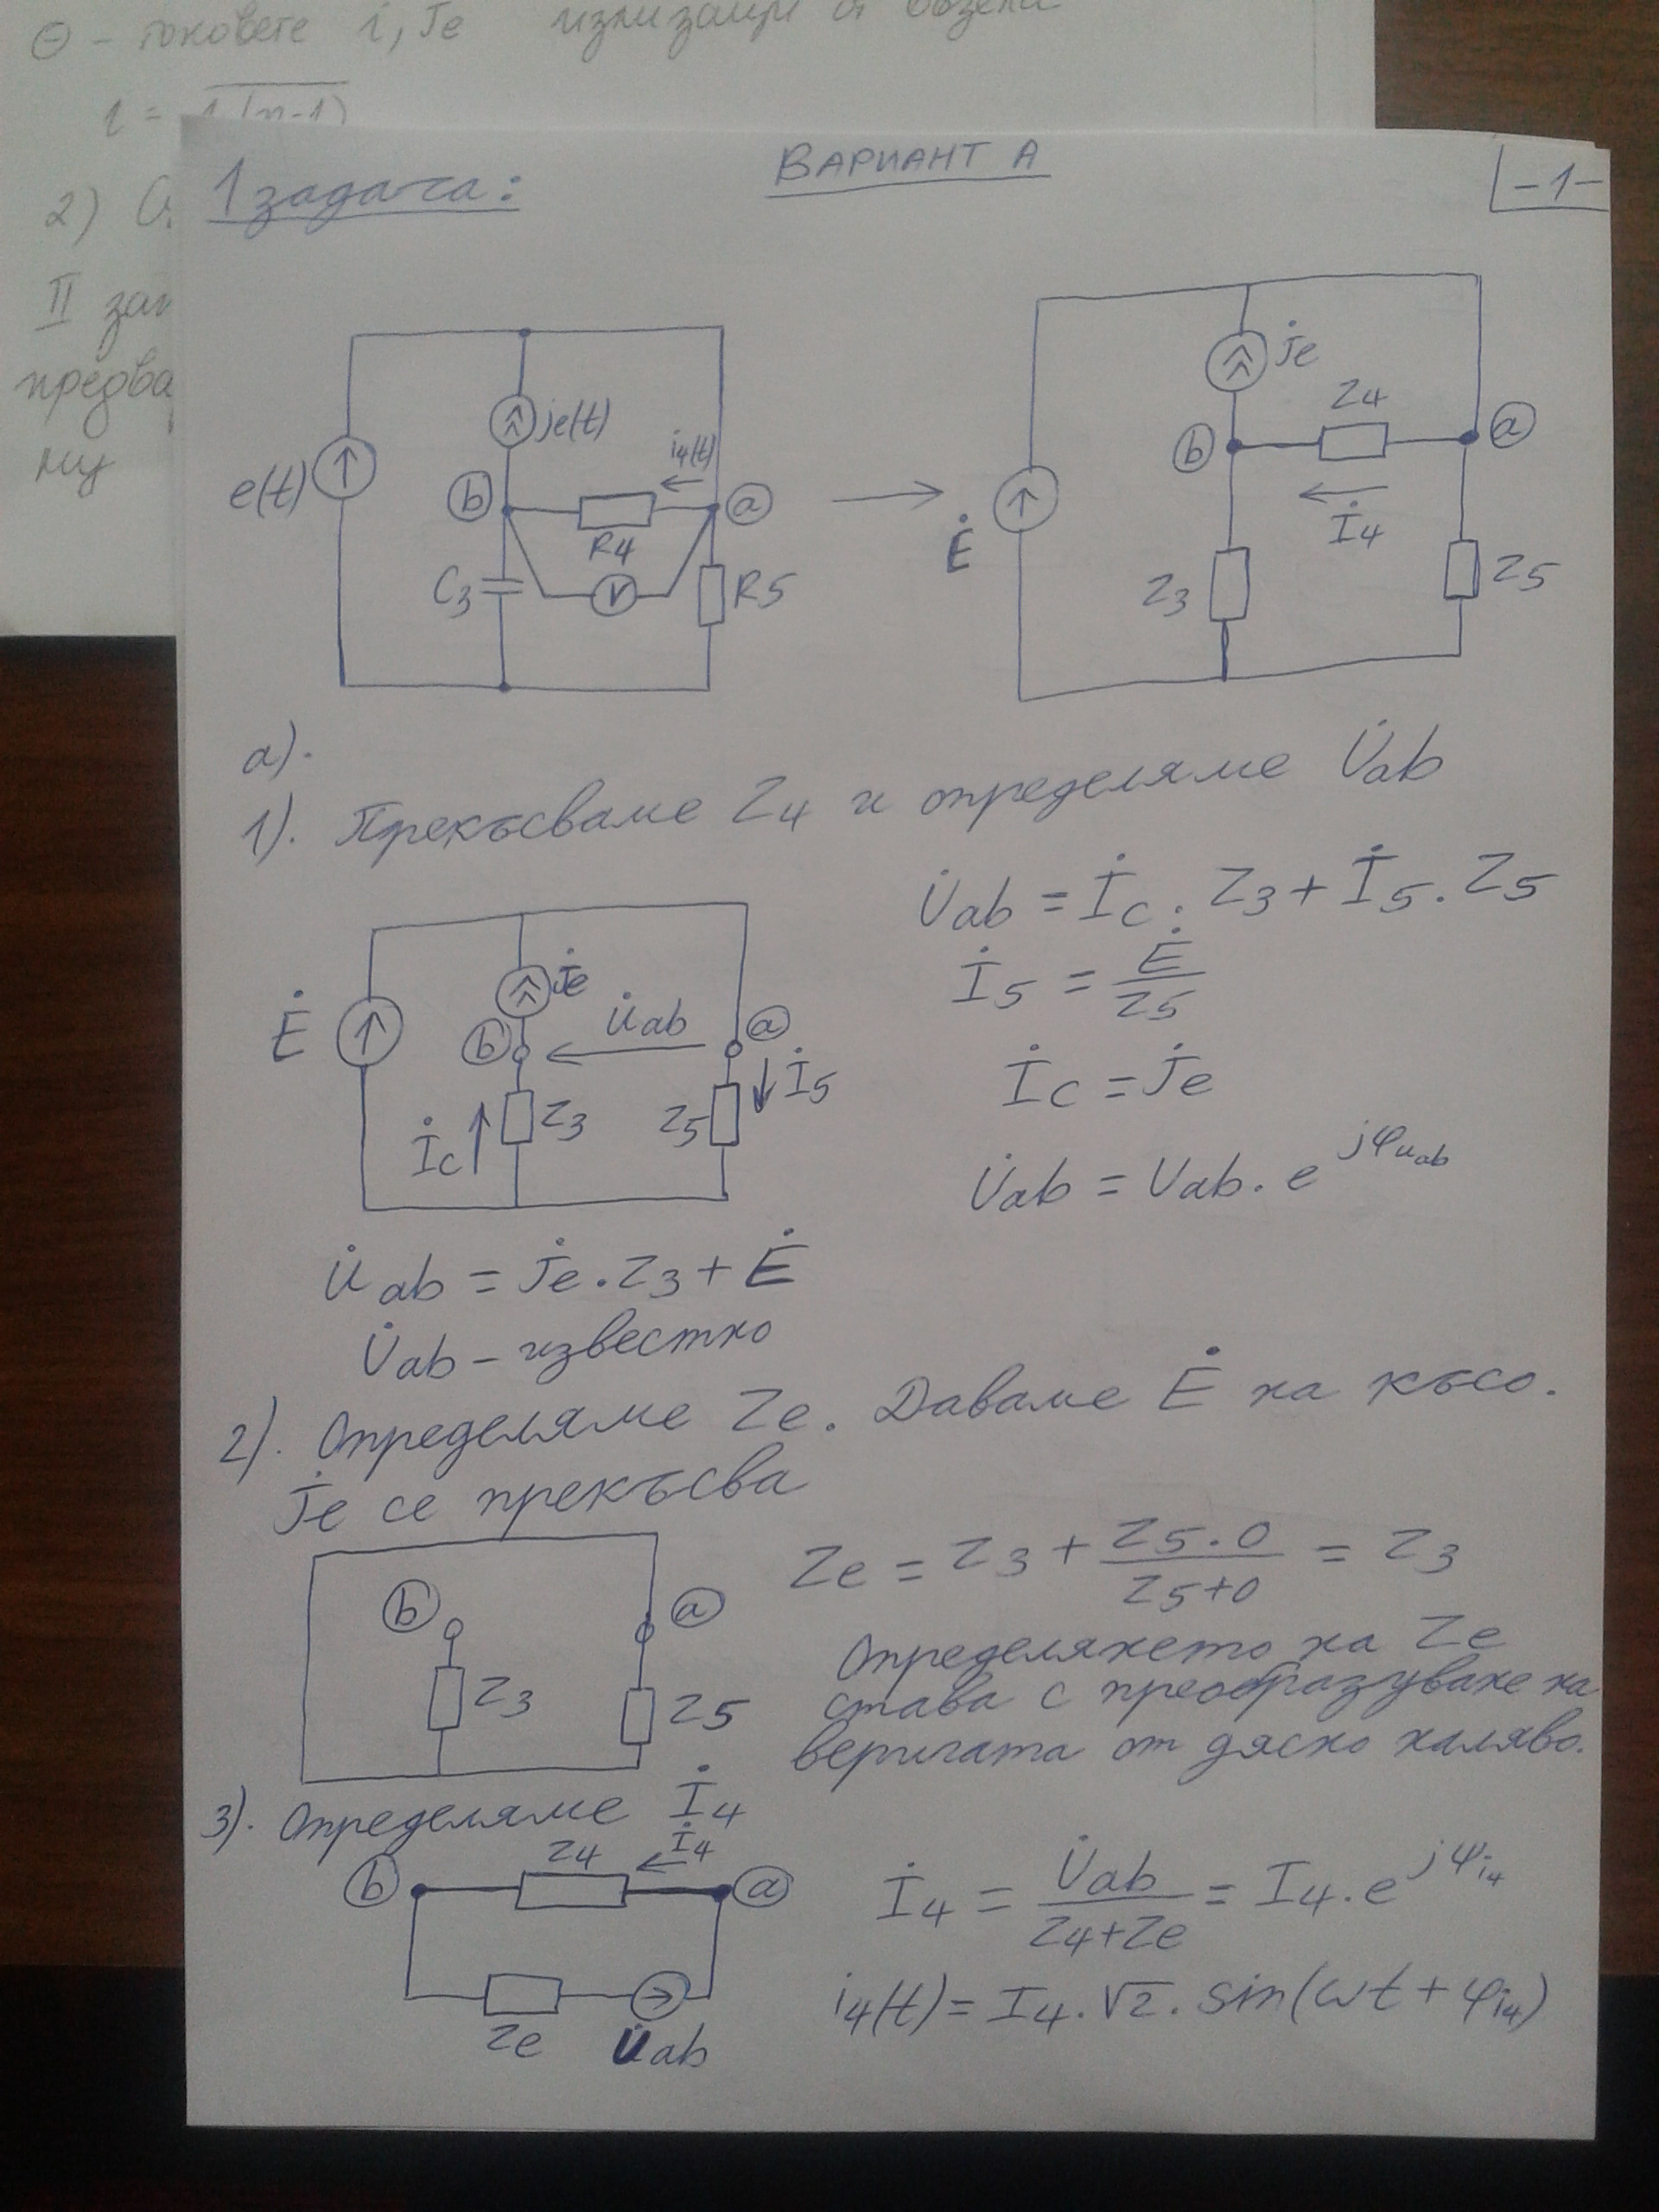 ⊖ - токовете i, Je излизащи от възела
i = 1,(n-1)
2)
II зак
предва
му
1 задача:
ВАРИАНТ А
-1-
e(t)
je(t)
b
i4(t)
a
R4
C3
V
R5
Ė
J̇e
Z4
b
a
İ4
Z3
Z5
а).
1). Прекъсваме Z4 и определяме U̇ab
U̇ab = İc . Z3 + İ5 . Z5
İ5 = Ė / Z5
İc = J̇e
U̇ab = Uab . e^jφuab
Ė
J̇e
b
U̇ab
a
İ5
İc
Z3
Z5
U̇ab = J̇e . Z3 + Ė
U̇ab - известно
2). Определяме Ze. Даваме Ė на късо.
J̇e се прекъсва
b
a
Z3
Z5
Ze = Z3 + Z5 . 0 / Z5+0 = Z3
Определянето на Ze
става с преобразуване на
веригата от дясно наляво.
3). Определяме İ4
b
Z4
İ4
a
Ze
U̇ab
İ4 = U̇ab / Z4+Ze = I4 . e^jφi4
i4(t) = I4 . √2 . sin(ωt + φi4)